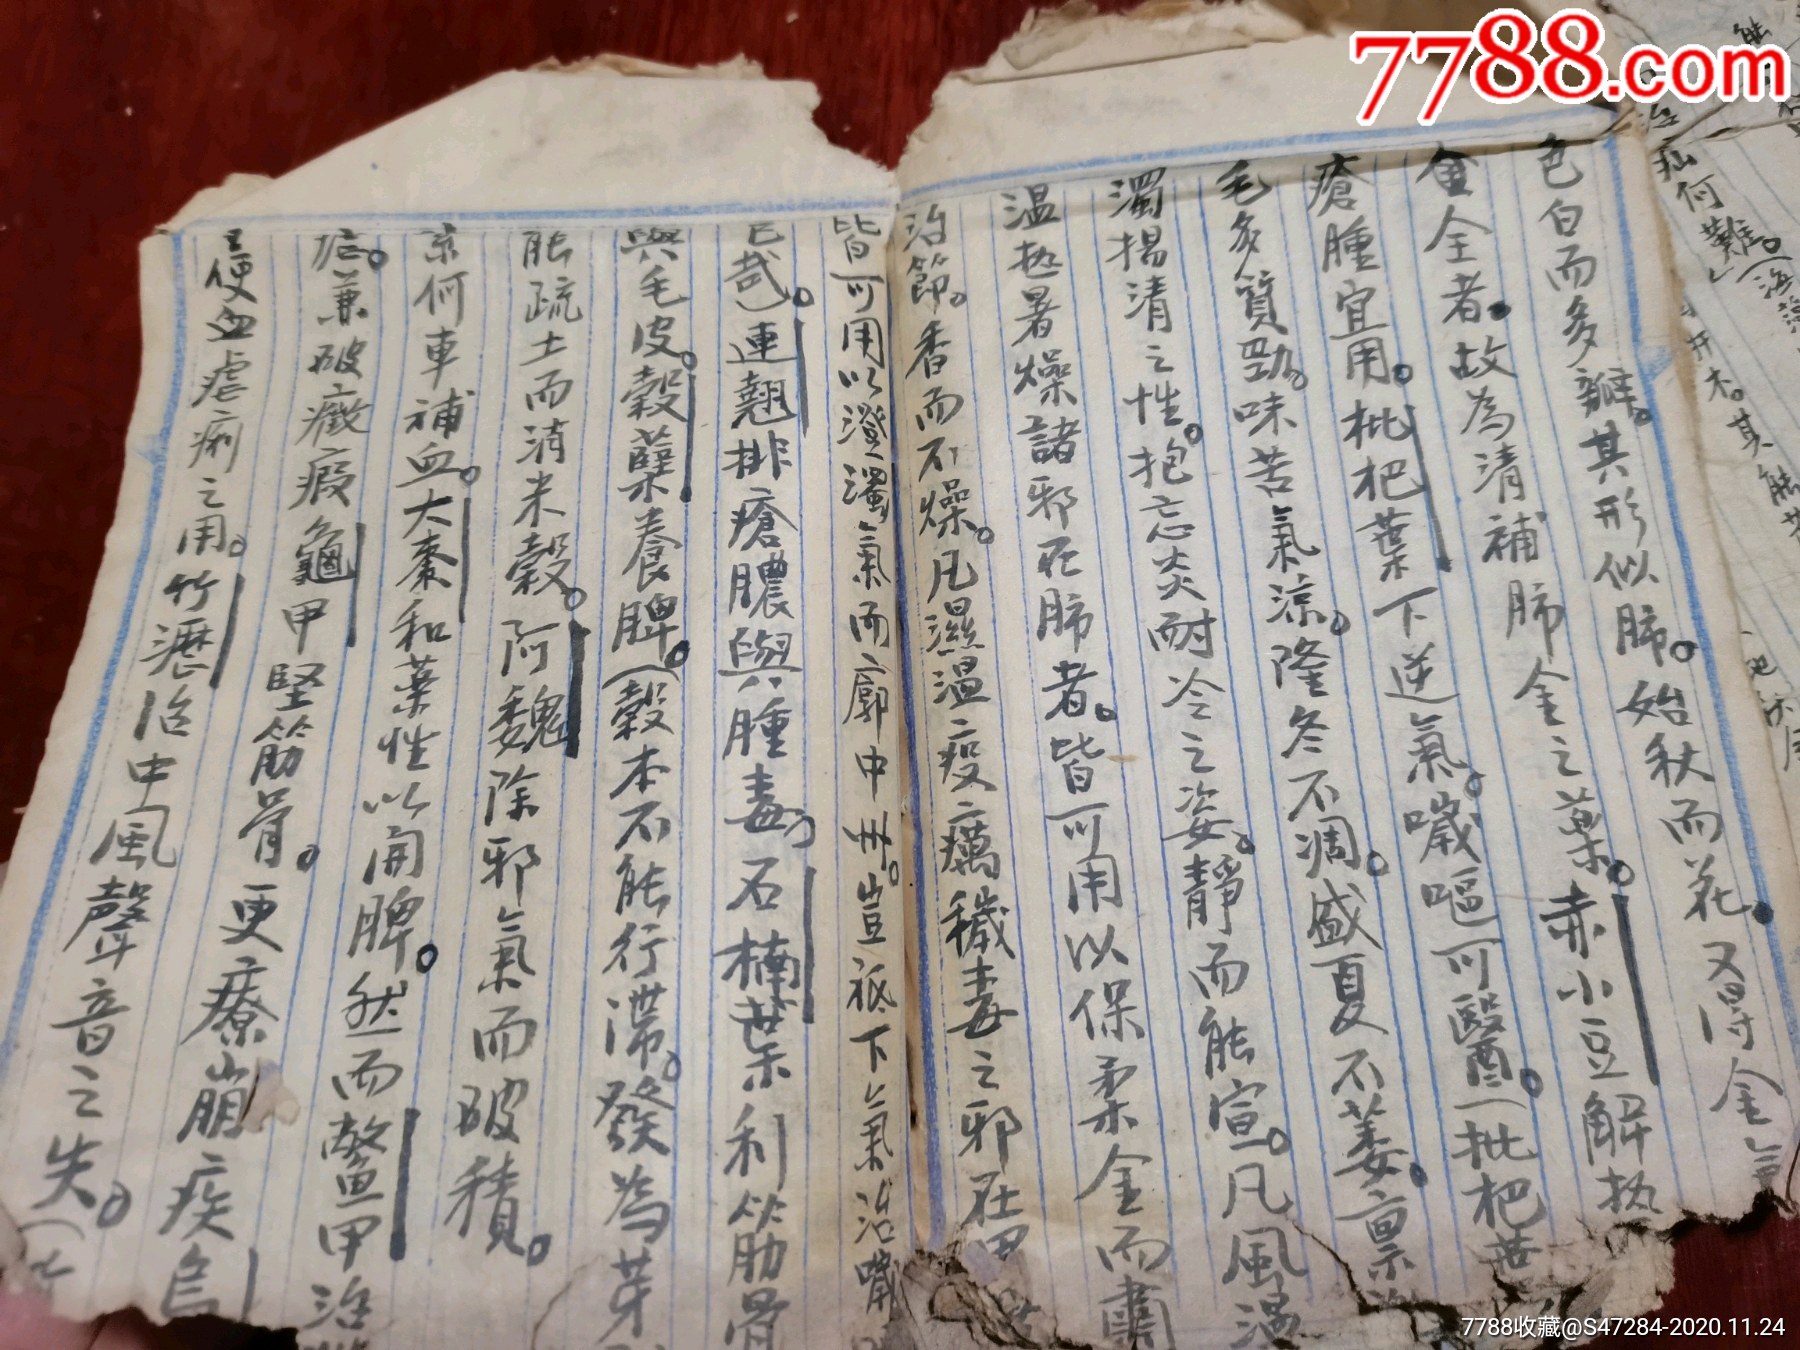 7788.com
色白而多瓣。其形似肺。始秋而花。又得金氣
金全者。故為清補肺金之藥。赤小豆解热
瘡腫宜用。枇杷葉下逆氣。噦嘔可醫。(枇杷葉
毛多質勁。味苦氣涼。隆冬不凋。盛夏不萎。稟
濁揚清之性。抱忘炎耐冷之姿。靜而能宣。凡風温
温热暑燥諸邪在肺者。皆可用以保柔金而肅
治節。香而不燥。凡濕温疫癘穢毒之邪在
皆可用以澄濁氣而廓中州。豈祗下氣治噦
已哉。連翹排瘡膿與腫毒。石楠葉利筋骨
與毛皮。穀蘖養脾。(穀本不能行滯。發為芽
能疏土而消米穀。阿魏除邪氣而破積。
紫何車補血。大棗和藥性以開脾。然而鱉甲治
瘧。兼破癥瘕。龜甲堅筋骨。更療崩疾。烏
主便血虐痢之用。竹瀝治中風聲音之失。(
疝何難。
井木。其能
7788收藏@S47284-2020.11.24